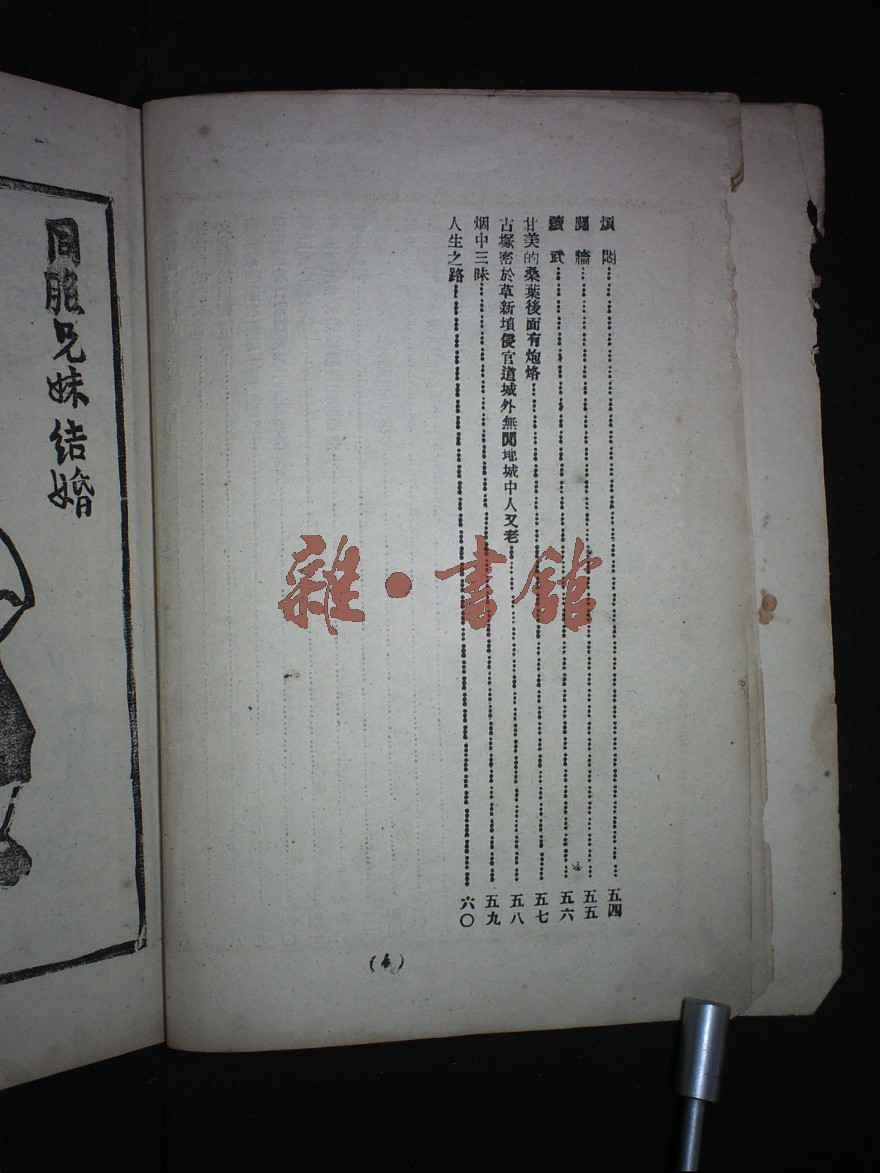 煩悶……五四
鬩牆……五五
黷武……五六
甘美的桑葉後面有炮烙……五七
古塚密於草新墳侵官道城外無閒地城中人又老……五八
烟中三昧……五九
人生之路……六〇
(4)
同胞兄妹结婚
雜·書館